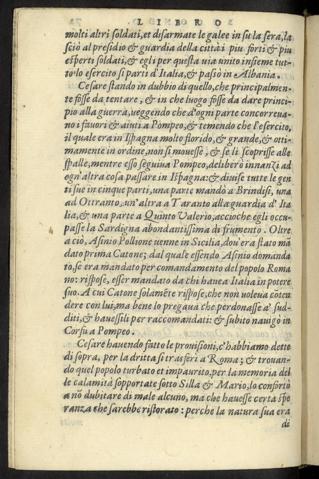 LIBRO
molti altri soldati, et disarmate le galee in su la sera, la
sciò al presidio & guardia della città i piu forti & piu
esperti soldati, & egli per questa via unito insieme tut-
to lo esercito si partì d'Italia, & passò in Albania.
Cesare stando in dubbio di quello, che principalmen-
te fosse da tentare, & in che luogo fosse da dare princi-
pio alla guerra, veggendo che d'ogni parte concorreua-
no i fauori & aiuti a Pompeo, & temendo che l'esercito,
il quale era in Ispagna molto florido, & grande, & otti-
mamente in ordine, non si mouesse, & se li scoprisse alle
spalle, mentre esso seguiua Pompeo, deliberò innanzi ad
ogn'altra cosa passare in Ispagna: & diuise tutte le gen
ti sue in cinque parti, una parte mandò a Brindisi, una
ad Ottranto, un'altra a Taranto alla guardia d'Ita
lia, & una parte a Quinto Valerio, accioche egli occu-
passe la Sardigna abondantissima di frumento. Oltre
a ciò, Asinio Pollione uenne in Sicilia, dou'era stato mā
dato prima Catone; dal quale essendo Asinio domanda
to, se era mandato per comandamento del popolo Roma
no: rispose, esser mandato da chi hauea Italia in potere
suo. A cui Catone solamēte rispose, che non uoleua cōten
dere con lui, ma bene lo pregaua che perdonasse a' sud-
diti, & hauessili per raccomandati: & subito nauigò in
Corfu a Pompeo.
Cesare hauendo fatto le prouisioni, c'habbiamo dette
di sopra, per la dritta si trasferì a Roma; & trouan-
do quel popolo turbato et impaurito, per la memoria del
le calamità sopportate sotto Silla & Mario, lo confortò
a nō dubitare di male alcuno, ma che hauesse certa spe
ranza che sarebbe ristorato: perche la natura sua era
di